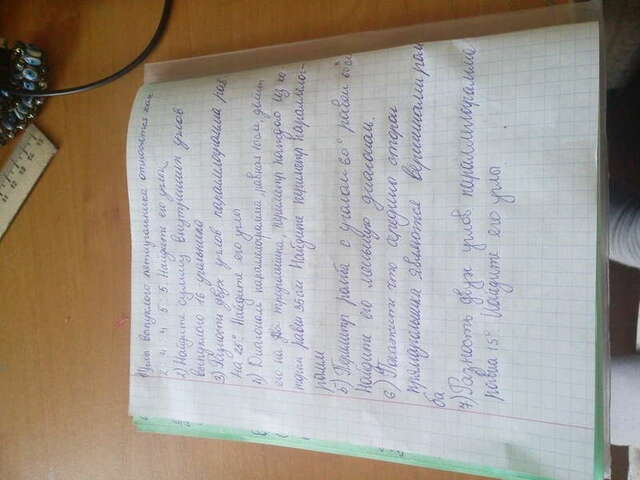 1) Углы выпуклого пятиугольника относятся как
2 : 4 : 4 : 5 : 5. Найдите его углы
2) Найдите сумму внутренних углов
выпуклого 16 угольника
3) Разность двух углов параллелограмма рав
на 25° Найдите его угло
4) Диагональ параллелограмма равная 10см делит
его на два треугольника, периметр каждого из ко-
торых равен 35см Найдите периметр параллелог-
рамм
5) Периметр ромба с углом 60° равен
Найдите его меньшую диагональ.
6) Докажите что середины сторон
прямоугольника являются вершинами ром
ба
7) Разность двух углов параллелограмма
равна 15° Найдите его углы